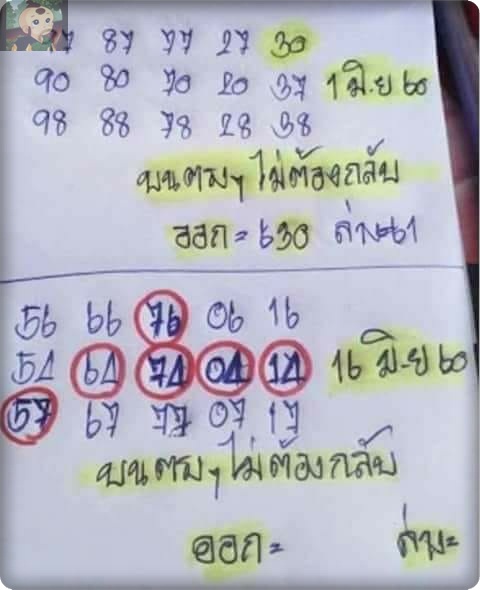 97 87 77 27 30
90 80 70 20 37 1 มิ.ย 60
98 88 78 28 38
บนตรงๆ ไม่ต้องกลับ
ออก = 630 ล่าง=61
56 66 76 06 16
54 64 74 04 14 16 มิ.ย 60
57 67 77 07 17
บนตรงๆ ไม่ต้องกลับ
ออก = ล่าง=